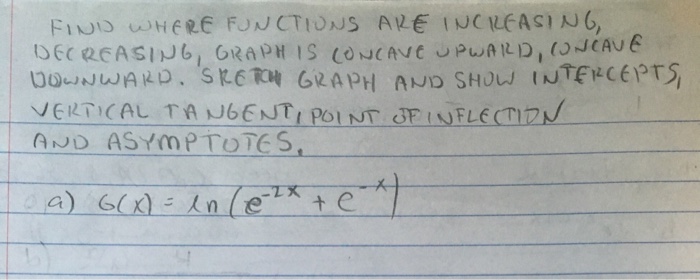 FIND WHERE FUNCTIONS ARE INCREASING,
DECREASING, GRAPH IS CONCAVE UPWARD, CONCAVE
DOWNWARD. SKETCH GRAPH AND SHOW INTERCEPTS,
VERTICAL TANGENT, POINT OF INFLECTION
AND ASYMPTOTES.
a) G(x) = ln(e⁻²ˣ + e⁻ˣ)